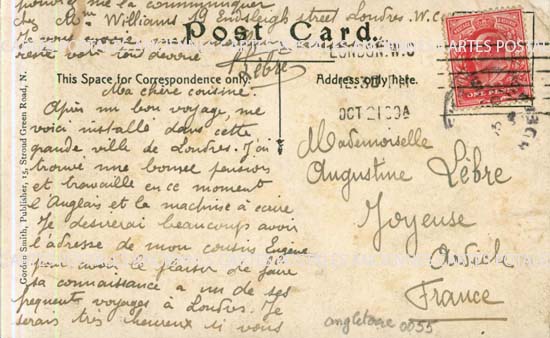 pouvez me la communiquer
chez Mme Williams 19 Endsleigh street Londres. W.C
Je vous
reste votre tout dévoué
Lèbre
Post Card.
This Space for Correspondence only.
Address only here.
LONDON.W.C
12.30 PM
OCT 21 09A
ONE PENNY
CARTES POSTALES
Gordon Smith, Publisher, 15, Stroud Green Road, N.
Ma chère cousine.
Après un bon voyage, me
voici installé dans cette
grande ville de Londres. J'ai
trouvé une bonne pension
et travaille en ce moment
l'Anglais et la machine à écrire
Je desirerai beaucoup avoir
l'adresse de mon cousin Eugène
pour avoir le plaisir de faire
sa connaissance a un de ses
frequents voyages à Londres. Je
serais très heureux si vous
Mademoiselle
Augustine Lèbre
Joyeuse
Ardèche
France
angleterre 0055